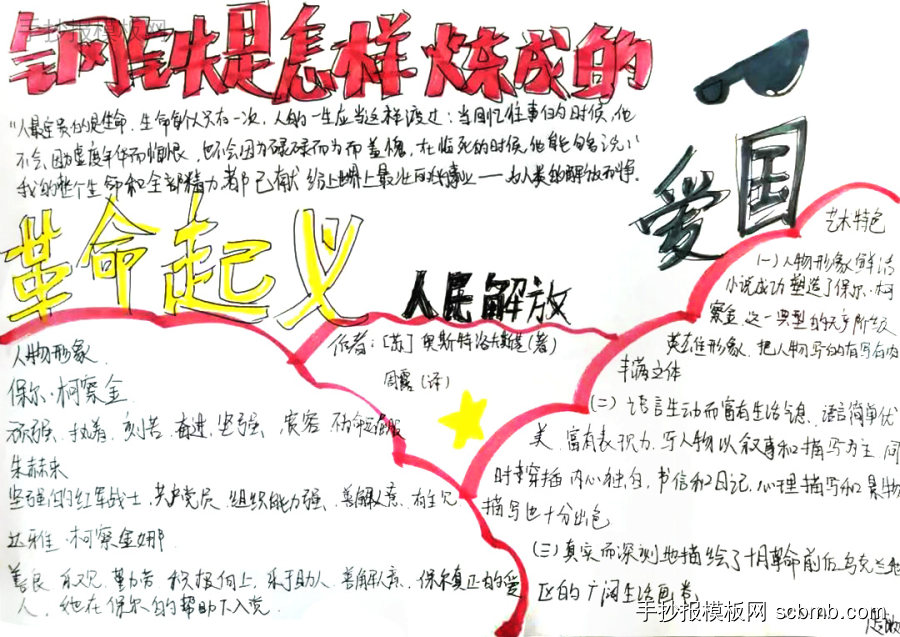 手抄报模板网
钢铁是怎样炼成的
"人最宝贵的是生命.生命每个人只有一次.人的一生应当这样渡过：当回忆往事的时候，他
不会因为虚度年华而悔恨，也不会因为碌碌而为而羞愧，在临死的时候，他能够说：
我的整个生命和全部精力，都已献给世界上最壮丽的事业——为人类的解放而斗争.
爱国
革命起义
人民解放
作者：[苏]奥斯特洛夫斯基(著)
周露(译)
人物形象
保尔·柯察金
顽强、执着、刻苦、奋进、坚强、宽容、不向命运屈服
朱赫来
坚强的红军战士，共产党员.组织能力强、善解人意、有主见
达雅·柯察金娜
善良 乐观，勤劳 积极向上，乐于助人、善解人意、保尔真正的爱
人，她在保尔的帮助下入党.
艺术特色
(一)人物形象鲜活
小说成功塑造了保尔·柯
察金这一典型的无产阶级
英雄形象，把人物写的有写有肉
丰满立体
(二)语言生动而富有生活气息、语言简单优
美、富有表现力，写人物以叙事和描写为主，同
时穿插内心独白，书信和日记，心理描写和景物
描写也十分出色
(三)真实而深刻地描绘了十月革命前后乌克兰地
区的广阔生活画卷
手抄报模板网 scbmb.com